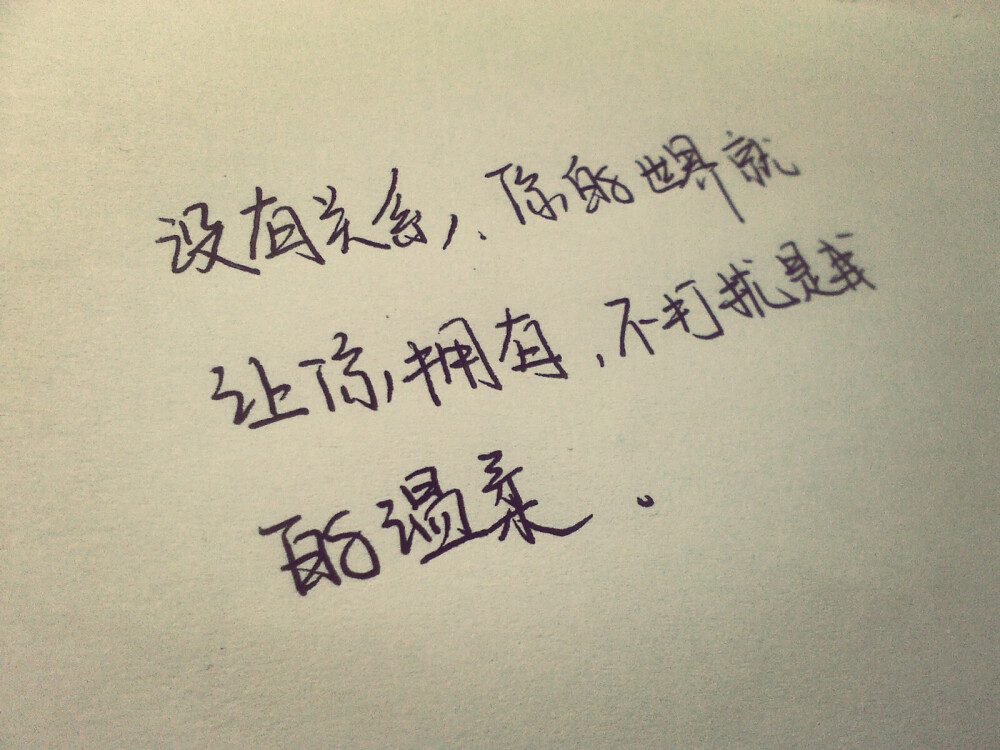 没有关系，你的世界就
让你拥有，不打扰是我
的温柔.